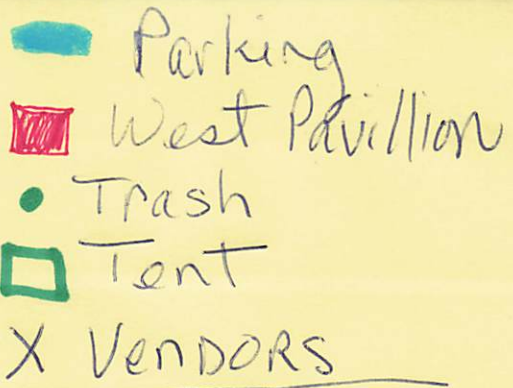 Parking
West Pavillion
Trash
Tent
X VENDORS